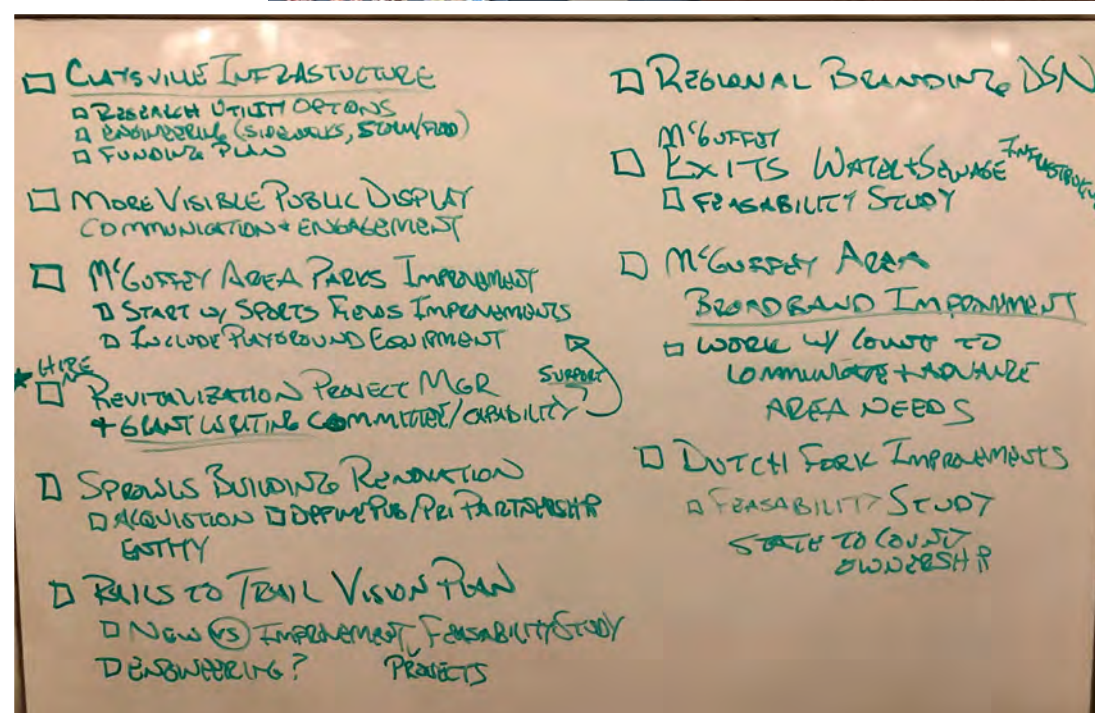 □ CLAYSVILLE INFRASTUCTURE
□ RESEARCH UTILITY OPTIONS
□ ENGINEERING (SIDEWALKS, STORM/FLOOD)
□ FUNDING PLAN
□ MORE VISIBLE PUBLIC DISPLAY
COMMUNICATION + ENGAGEMENT
□ McGUFFEY AREA PARKS IMPROVEMENT
□ START W/ SPORTS FIELDS IMPROVEMENTS
□ INCLUDE PLAYGROUND EQUIPMENT
★ HIRE
□ REVITALIZATION PROJECT MGR
SUPPORT
+ GRANT WRITING COMMITTEE/CAPABILITY
□ SPROWLS BUILDING RENOVATION
□ ACQUISTION □ DEFINE PUB/PRI PARTNERSHIP
ENTITY
□ RAILS TO TRAIL VISION PLAN
□ NEW VS IMPROVEMENT, FEASABILITY STUDY
□ ENGINEERING? PROJECTS
□ REGIONAL BRANDING DSN
McGUFFEY
□ EXITS WATER + SEWAGE
□ FEASABILITY STUDY
□ McGUFFEY AREA
BROADBAND IMPROVMENT
□ WORK W/ COUNTY TO
COMMUNICATE + ADVANCE
AREA NEEDS
□ DUTCH FORK IMPROVEMENTS
□ FEASABILITY STUDY
STATE TO COUNTY
OWNERSHIP